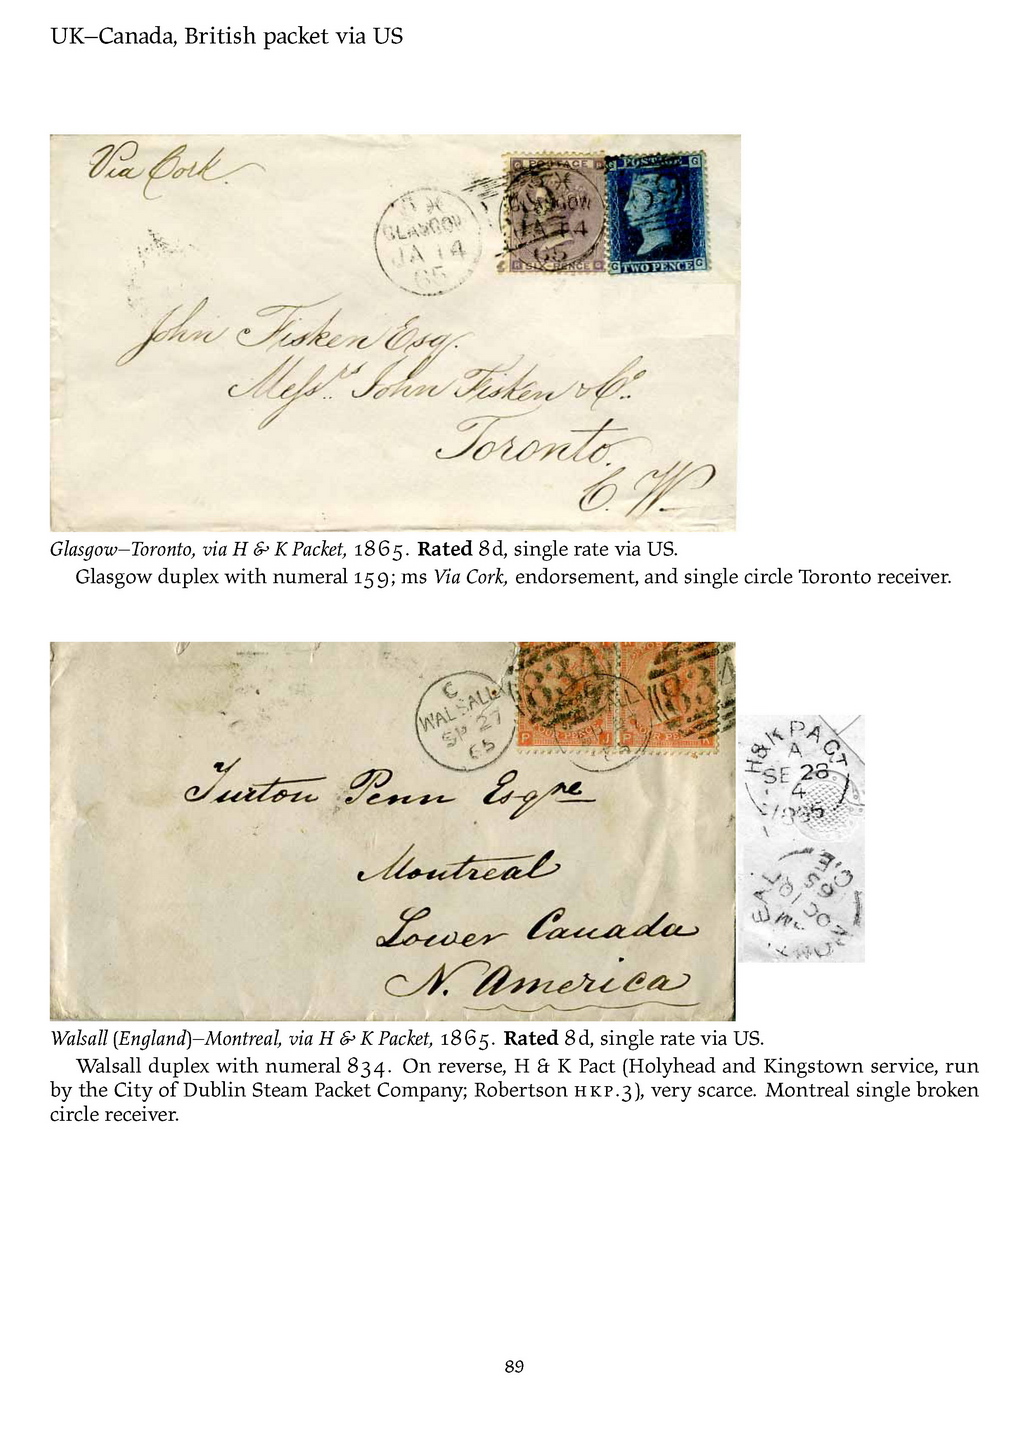 UK–Canada, British packet via US
Via Cork.
GLASGOW
JA 14
65
POSTAGE
GLASGOW
JA 14
65
SIX-PENCE
POSTAGE G
G TWO PENCE G
John Fisken Esq.
Messrs. John Fisken & Co.
Toronto.
C. W.
Glasgow–Toronto, via H & K Packet, 1865. Rated 8d, single rate via US.
Glasgow duplex with numeral 159; ms Via Cork, endorsement, and single circle Toronto receiver.
C
WALSALL
SP 27
65
834
834
P J P K
Turton Penn Esqre
Montreal
Lower Canada
N. America
H&K PACT
A
SE 28
4
1865
MONTREAL
C.E
OC 10
65
Walsall (England)–Montreal, via H & K Packet, 1865. Rated 8d, single rate via US.
Walsall duplex with numeral 834. On reverse, H & K Pact (Holyhead and Kingstown service, run
by the City of Dublin Steam Packet Company; Robertson HKP.3), very scarce. Montreal single broken
circle receiver.
89